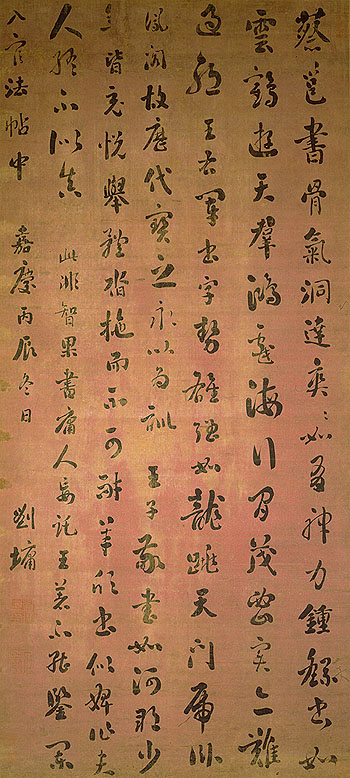 蔡邕書骨氣洞達爽爽如有神力鍾繇書如
雲鶴遊天羣鴻戲海行間茂密實亦難
過王右軍書字勢雄強如龍跳天門虎臥
鳳閣故歷代寶之永以為訓 王子敬書如河朔少
年皆充悅舉體沓拖而不可耐羊欣書似婢作夫
人不似真 此非智果書庸人妄託王著不能鑒
入官法帖中 嘉慶丙辰冬日 劉墉